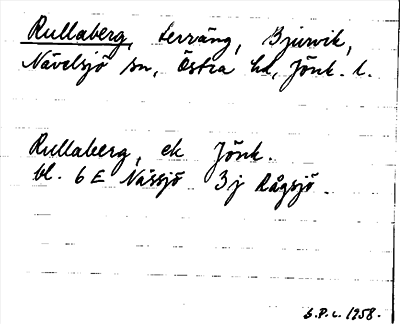 Rullaberg, terräng, Bjurvik,
Nävelsjö sn, Östra hd, Jönk. l.
Rullaberg, ek Jönk.
bl. 6 E Nässjö 3 j Rågsjö
S.P.c. 1958.